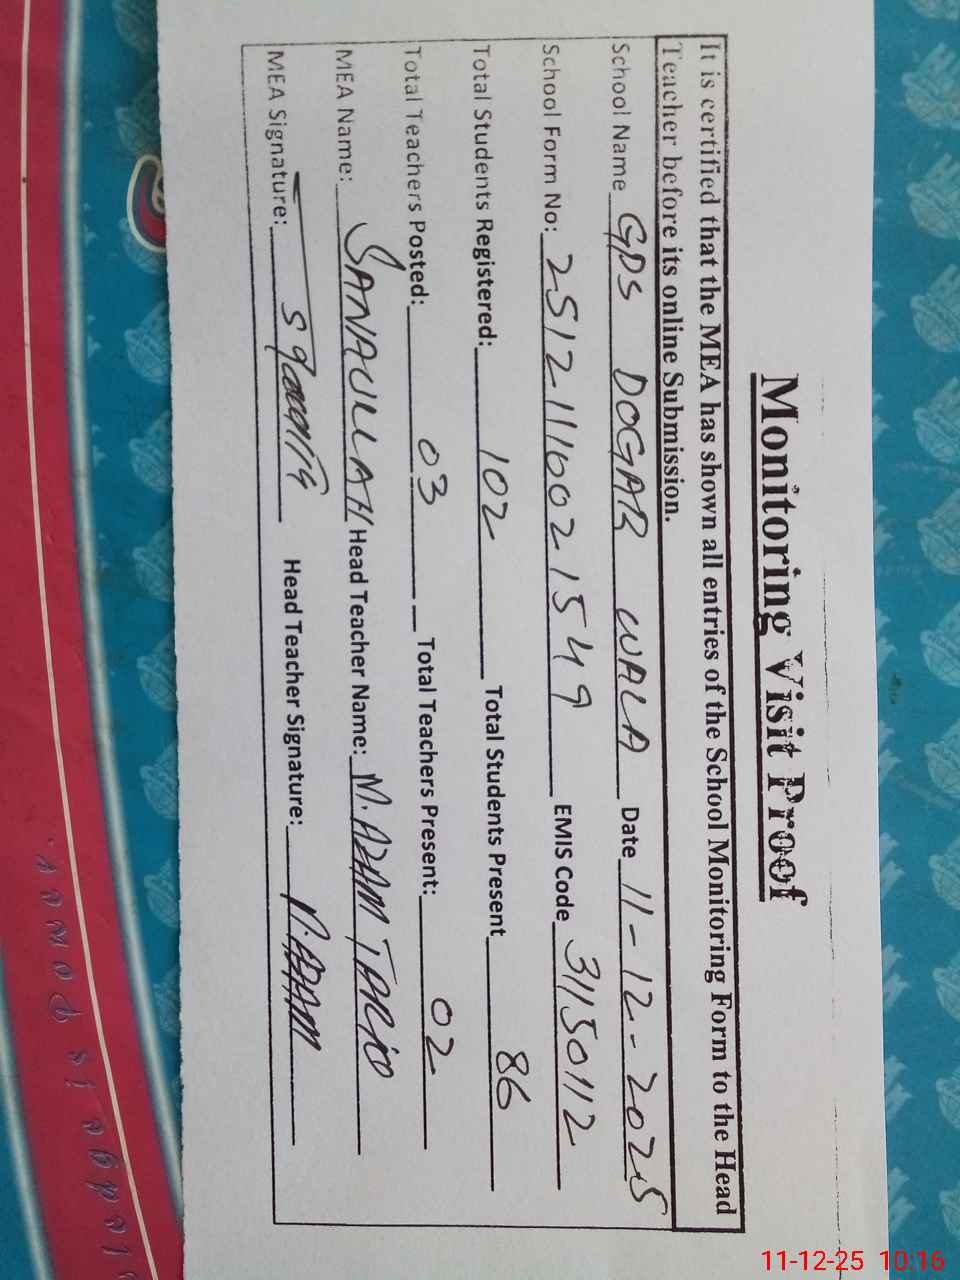 Monitoring Visit Proof
It is certified that the MEA has shown all entries of the School Monitoring Form to the Head
Teacher before its online Submission.
School Name GPS DOGAR WALA Date 11-12-2025
School Form No: 25121110021549 EMIS Code 31150112
Total Students Registered: 102 Total Students Present 86
Total Teachers Posted: 03 Total Teachers Present: 02
MEA Name: SANAULLAH Head Teacher Name: M. AZAM TARIQ
MEA Signature: Head Teacher Signature:
11-12-25 10:16